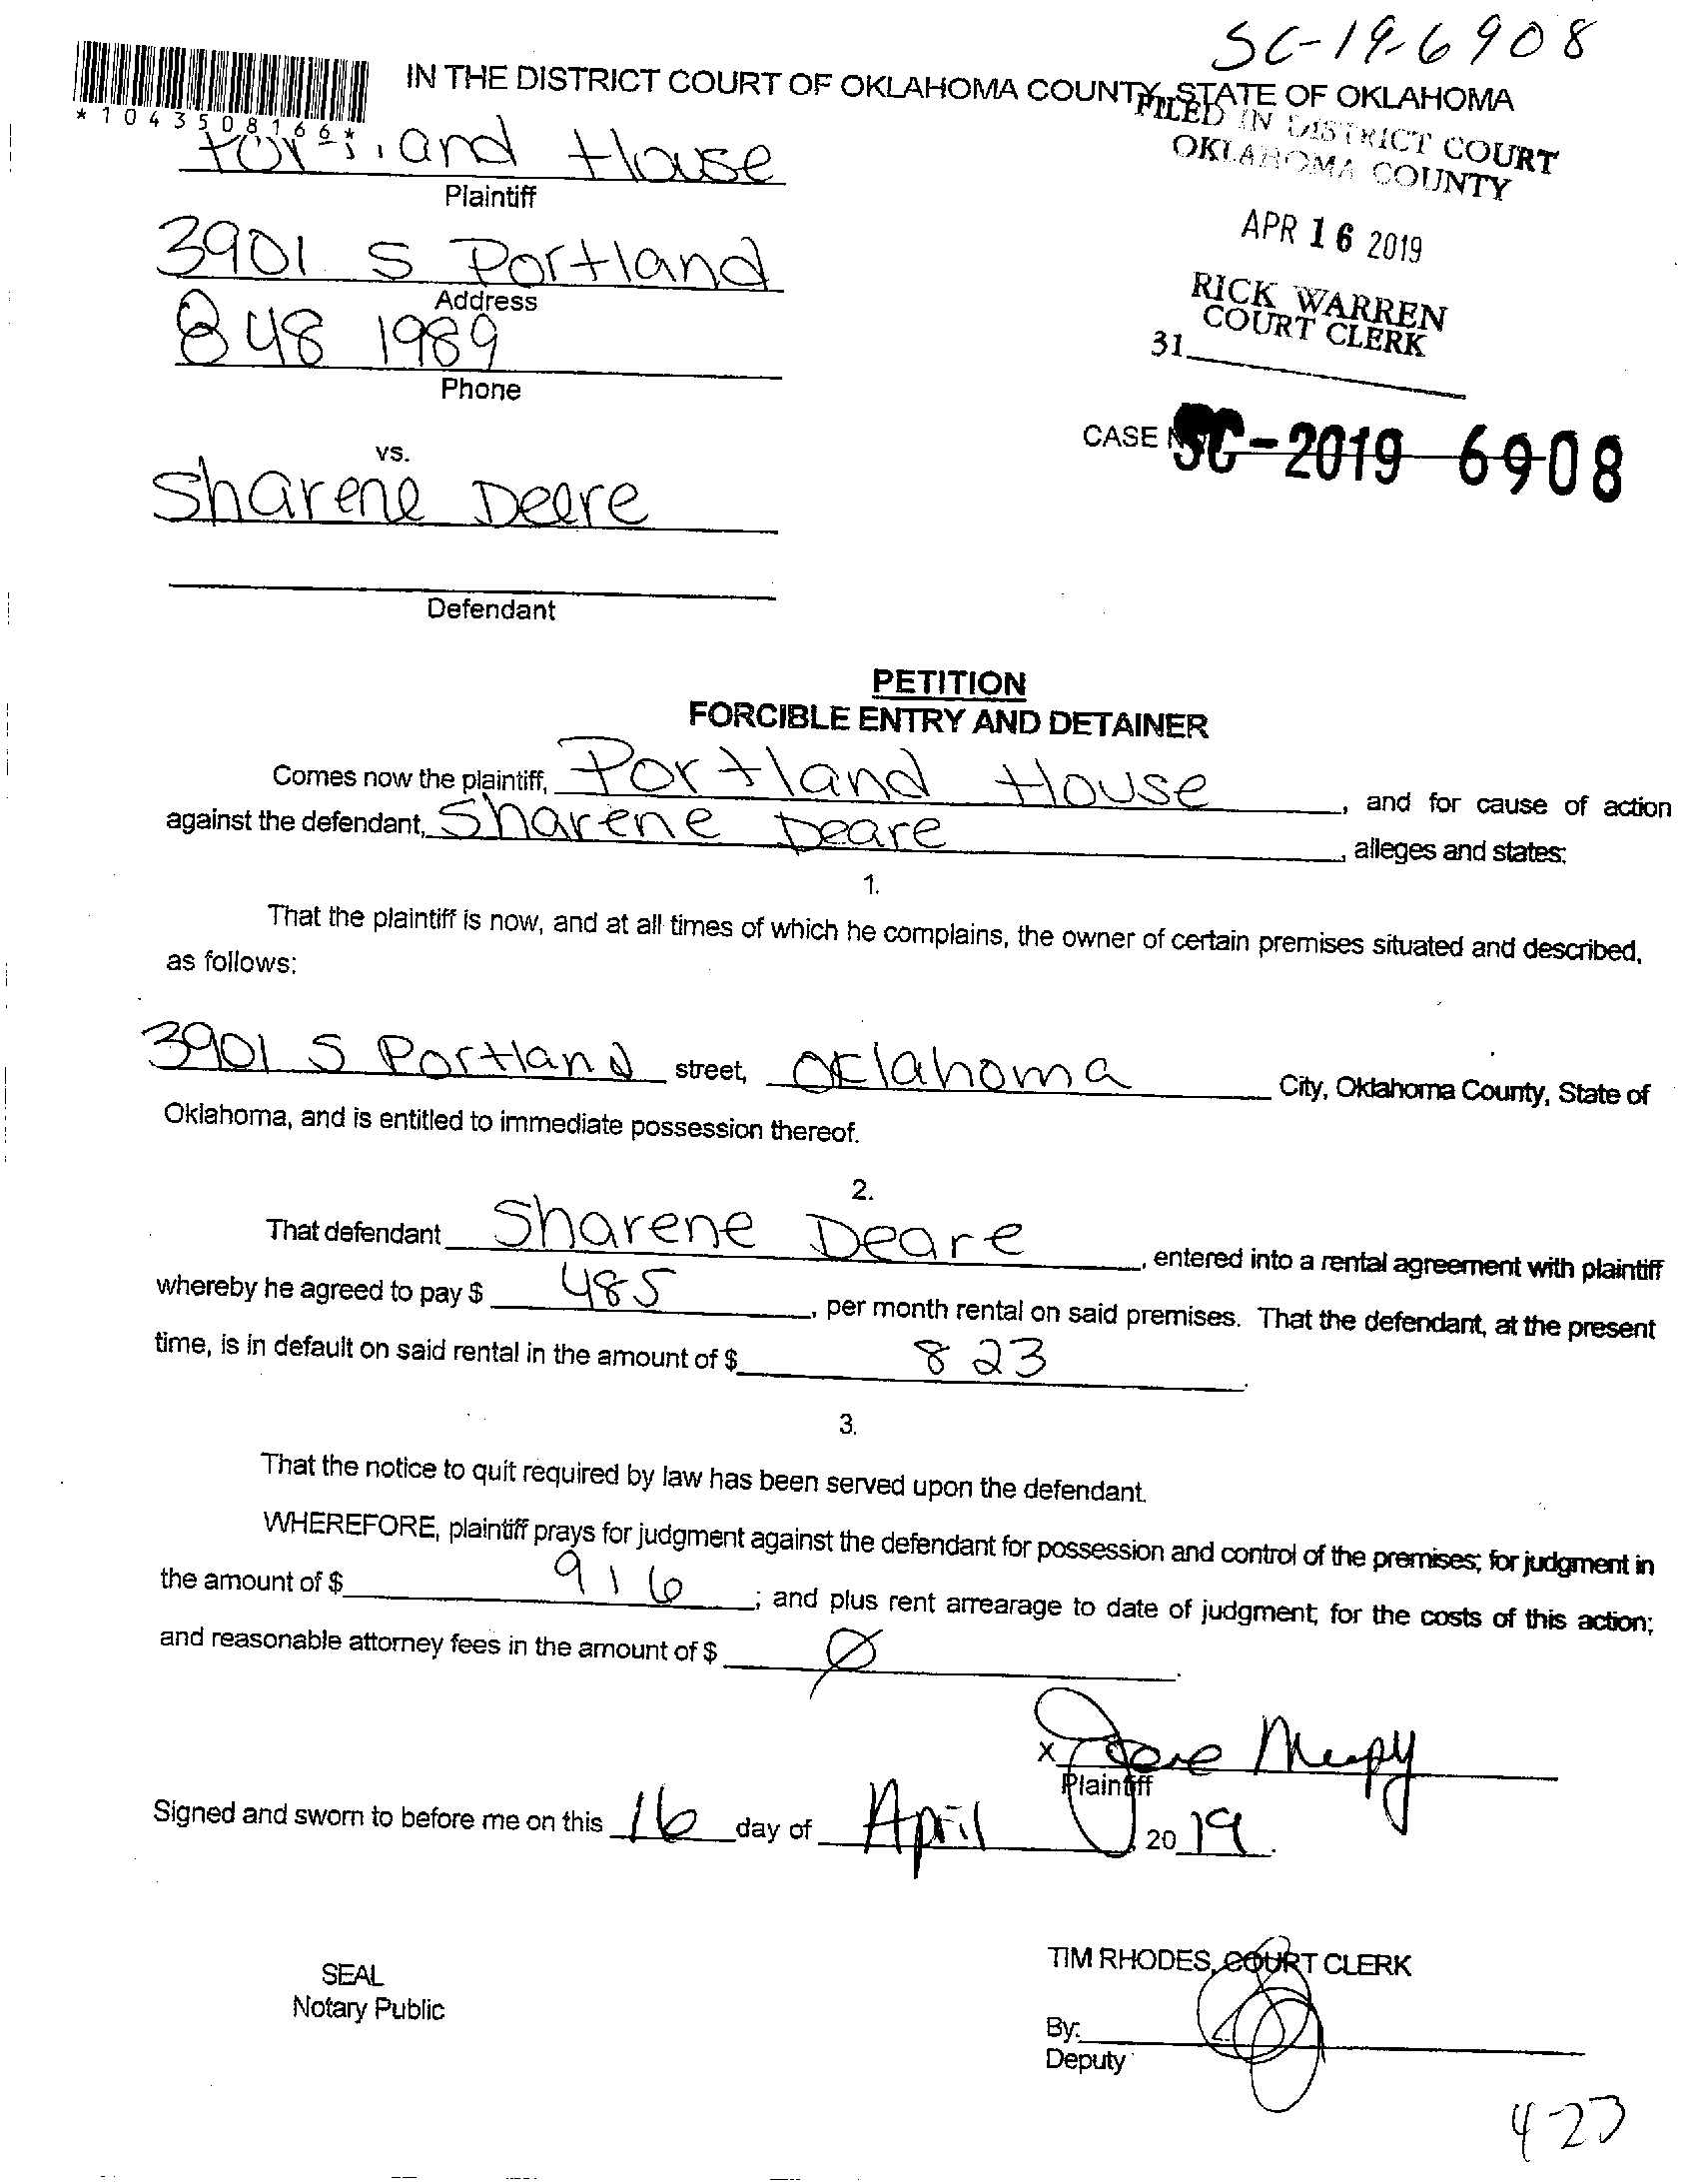 SC-19-6908
IN THE DISTRICT COURT OF OKLAHOMA COUNTY, STATE OF OKLAHOMA
*1043508166*
FILED IN DISTRICT COURT
OKLAHOMA COUNTY
Portland House
Plaintiff
3901 S Portland
Address
APR 16 2019
848 1989
Phone
RICK WARREN
COURT CLERK
31
CASE SC-2019 6908
vs.
Sharene Deere
Defendant
PETITION
FORCIBLE ENTRY AND DETAINER
Comes now the plaintiff, Portland House, and for cause of action
against the defendant, Sharene Deare, alleges and states:
1.
That the plaintiff is now, and at all times of which he complains, the owner of certain premises situated and described,
as follows:
3901 S Portland street, Oklahoma City, Oklahoma County, State of
Oklahoma, and is entitled to immediate possession thereof.
2.
That defendant Sharene Deare, entered into a rental agreement with plaintiff
whereby he agreed to pay $ 485, per month rental on said premises. That the defendant, at the present
time, is in default on said rental in the amount of $ 823.
3.
That the notice to quit required by law has been served upon the defendant.
WHEREFORE, plaintiff prays for judgment against the defendant for possession and control of the premises; for judgment in
the amount of $ 916; and plus rent arrearage to date of judgment; for the costs of this action;
and reasonable attorney fees in the amount of $ Ø.
X
Plaintiff
Signed and sworn to before me on this 16 day of April, 20 19.
TIM RHODES, COURT CLERK
SEAL
Notary Public
By:
Deputy
4-23